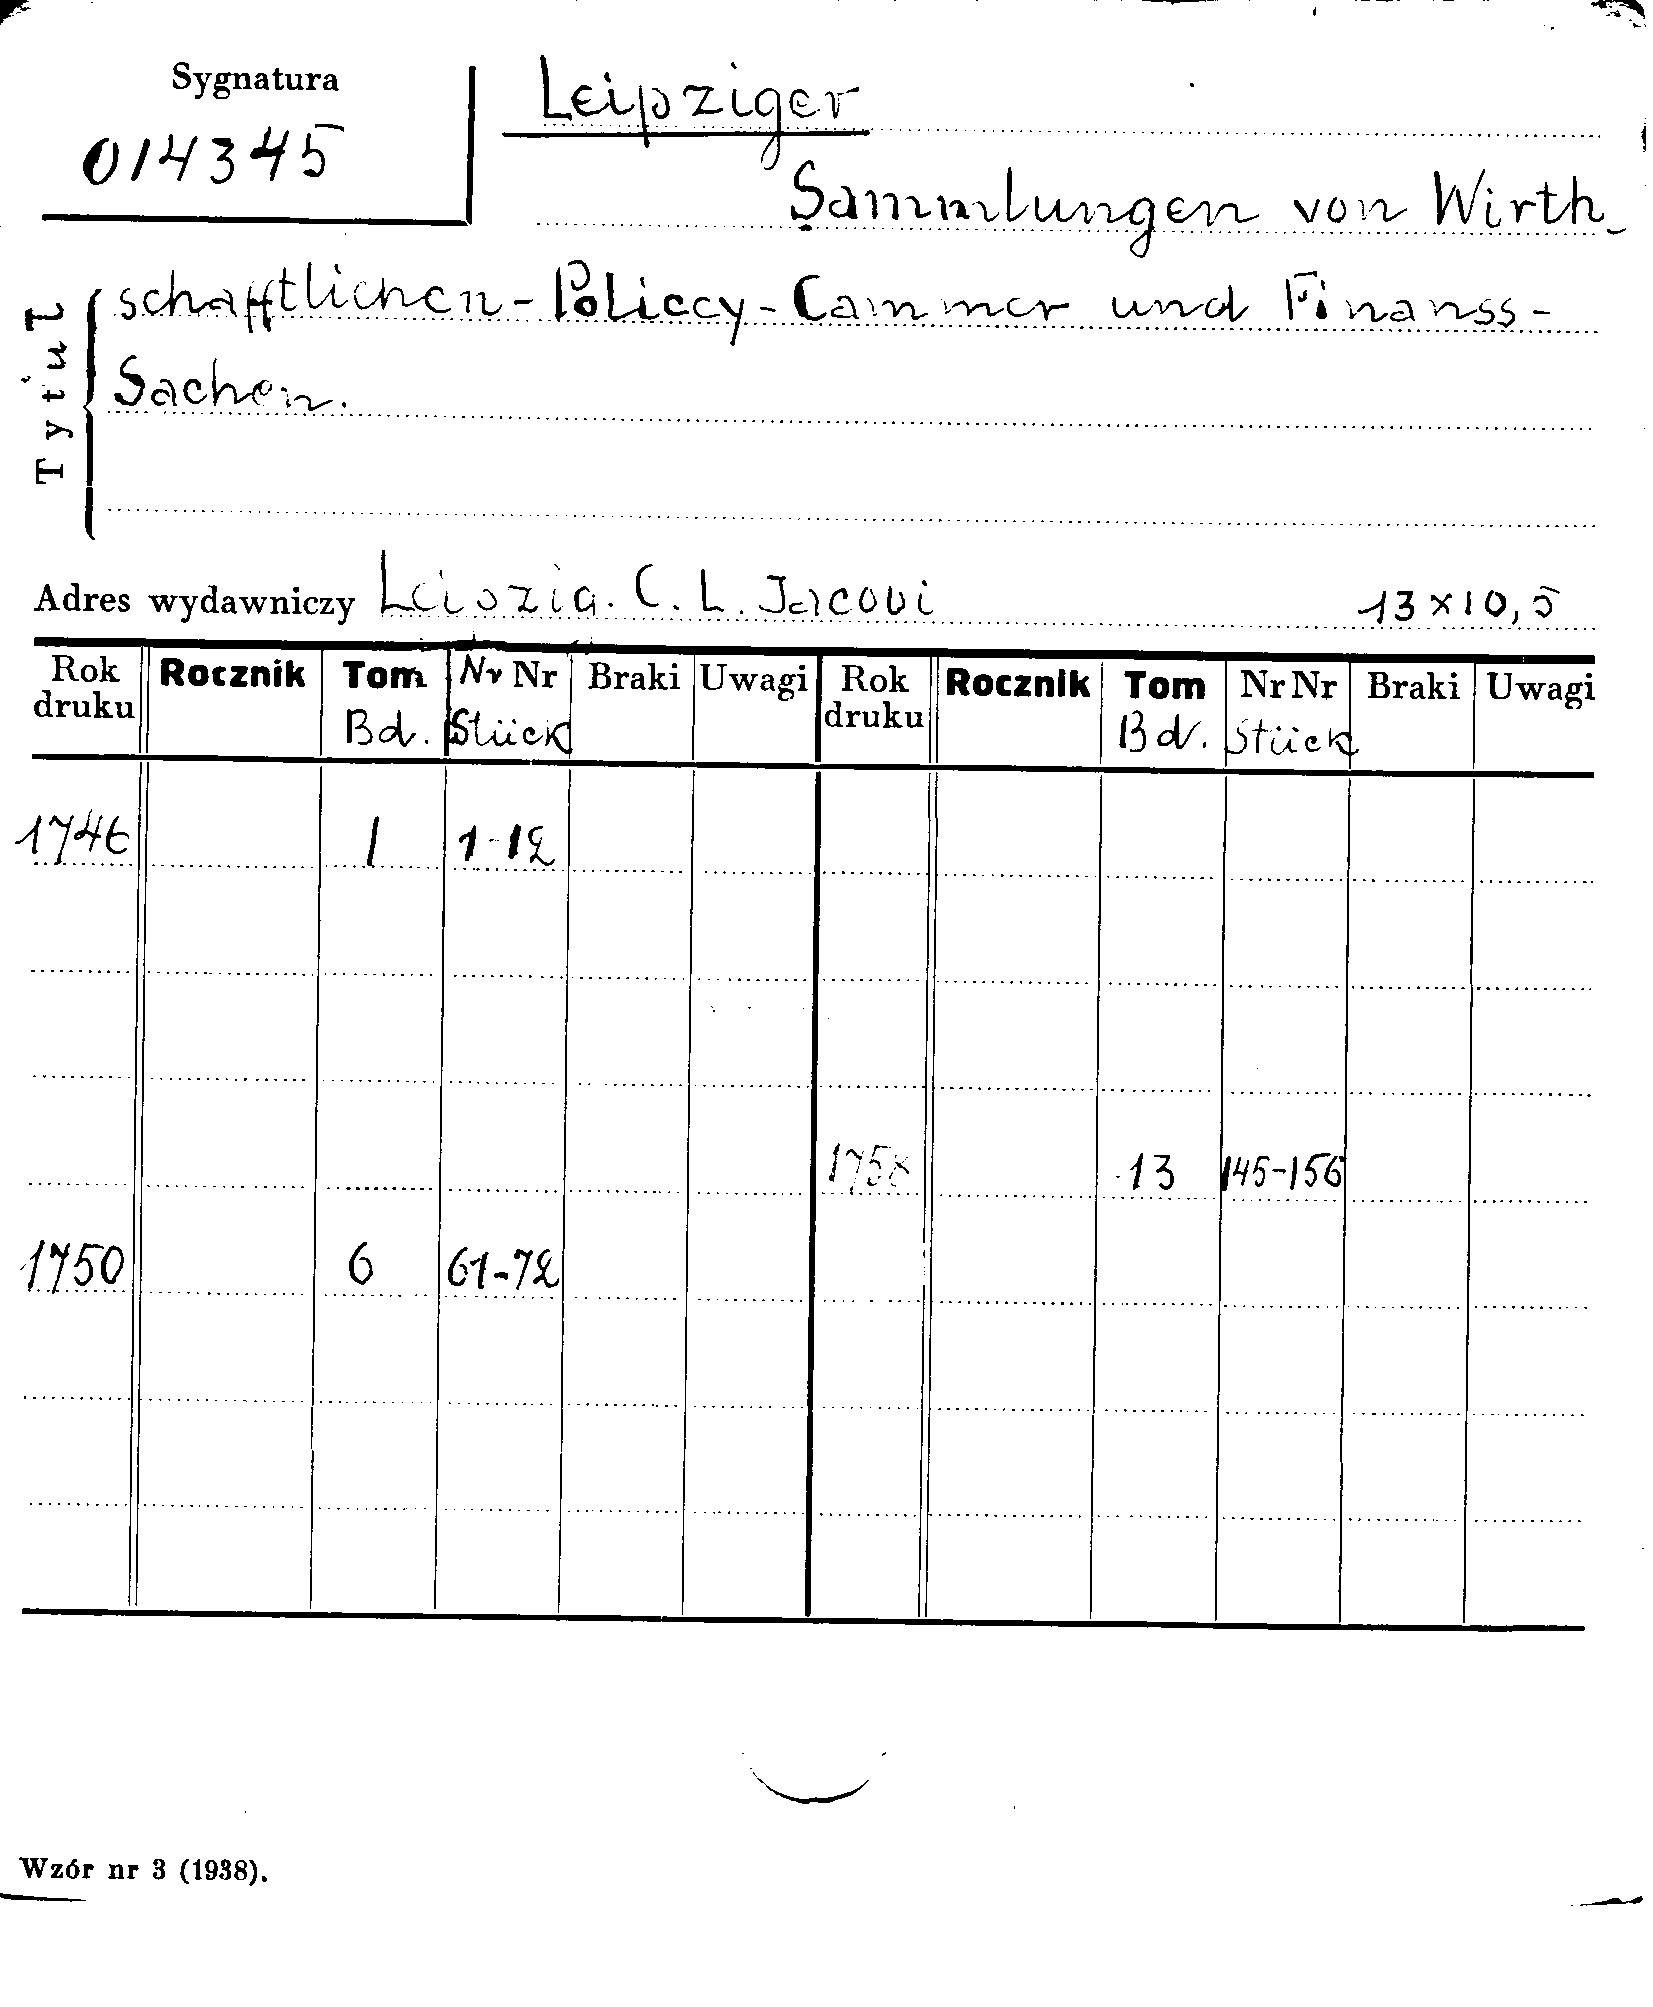 Sygnatura
014345
Leipziger
Sammlungen von Wirth-
schafftlichen-Policcy-Cammer und Finanss-
Sachen.
Tytuł
Adres wydawniczy Leipzig. C. L. Jacobi 13×10,5
Rok druku Rocznik Tom Nr Nr Braki Uwagi Rok druku Rocznik Tom Nr Nr Braki Uwagi
Bd. Stück Bd. Stück
1746 1 1-12
1758 13 145-156
1750 6 61-72
Wzór nr 3 (1938).